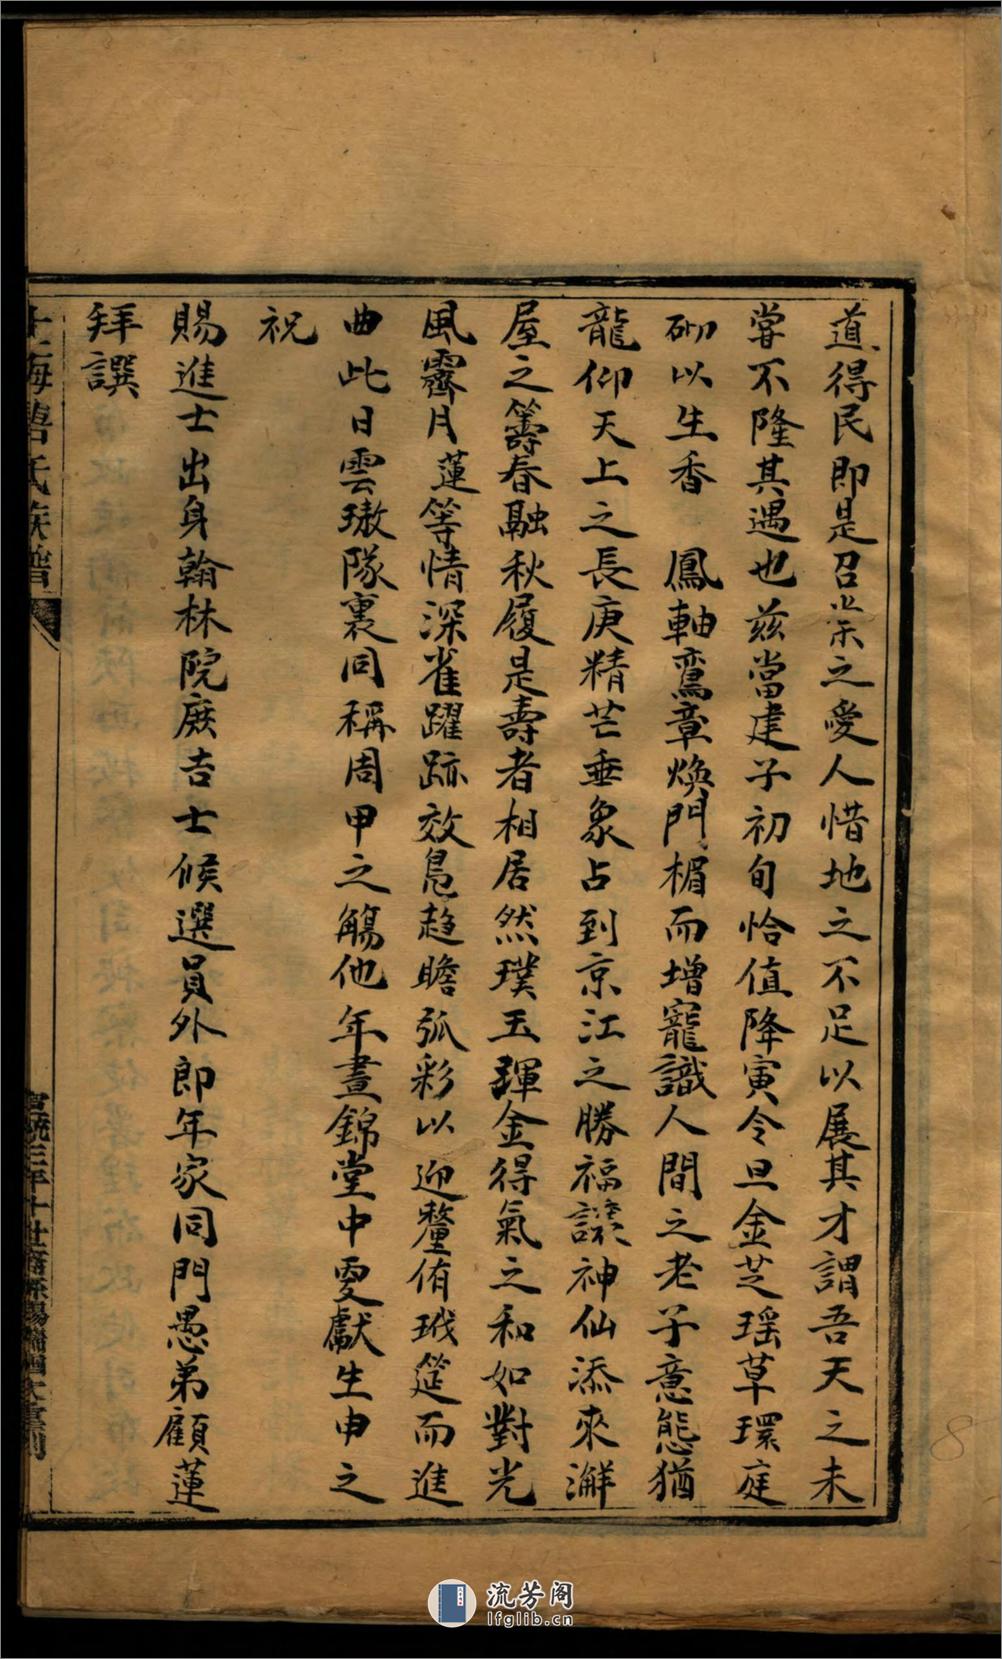 道得民即是召棠之愛人惜地之不足以展其才謂吾天之未
嘗不隆其遇也茲當建子初旬恰值降寅令旦金芝瑶草環庭
砌以生香 鳳軸鸞章煥門楣而增寵識人間之老子意態猶
龍仰天上之長庚精芒垂象占到京江之勝福讓神仙添來澥
屋之籌春融秋履是壽者相居然璞玉渾金得氣之和如對光
風霽月蓮等情深雀躍跡效鳧趋瞻弧彩以迎釐侑珬筵而進
曲此日雲璈隊裏同稱周甲之觴他年晝錦堂中更獻生申之
祝
賜進士出身翰林院庶吉士候選員外郎年家同門愚弟顧蓮
拜譔
上海曹氏族譜
流芳阁
lfglib.cn
8